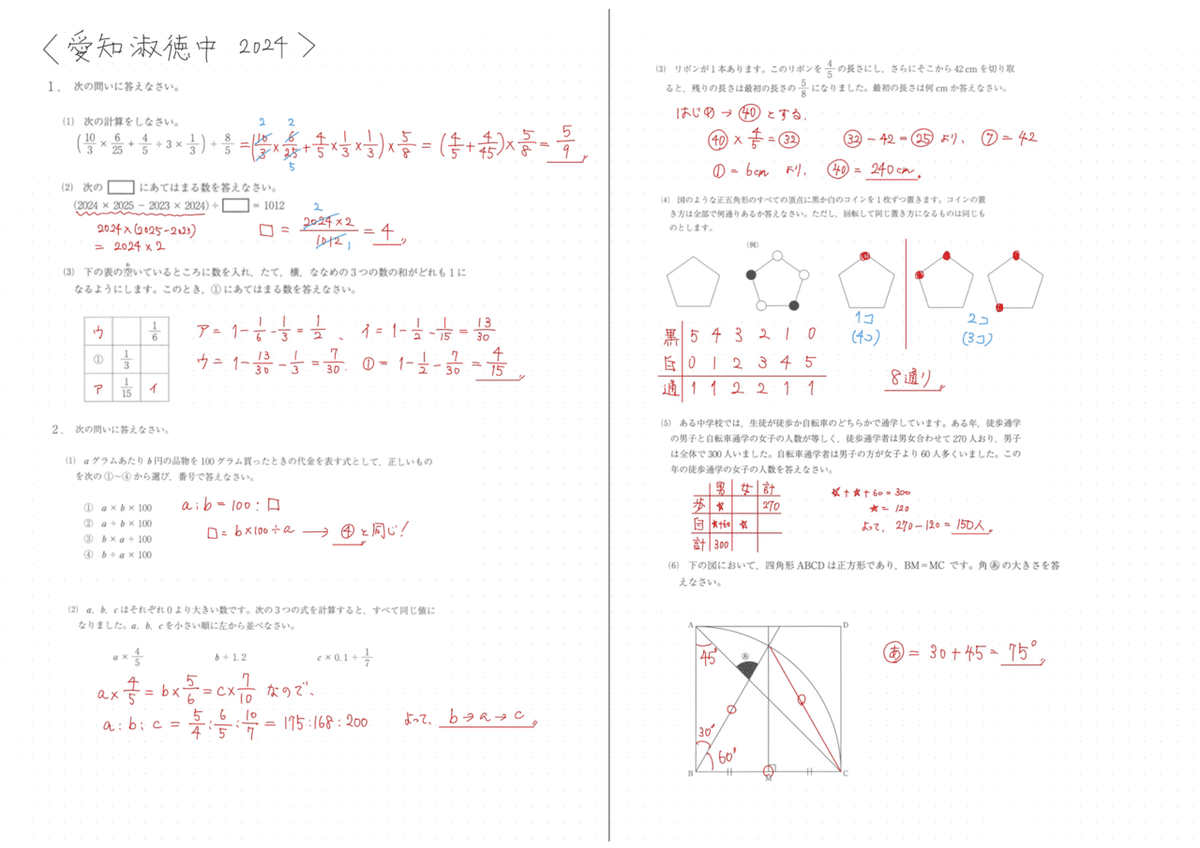 〈愛知淑徳中 2024〉
1. 次の問いに答えなさい。
(1) 次の計算をしなさい。
(10/3 × 6/25 + 4/5 ÷ 3 × 1/3) ÷ 8/5 = (10/3 × 6/25 + 4/5 × 1/3 × 1/3) × 5/8 = (4/5 + 4/45) × 5/8 = 5/9
2 2 5
(2) 次の □ にあてはまる数を答えなさい。
(2024 × 2025 − 2023 × 2024) ÷ □ = 1012
2024×(2025−2023)
= 2024×2
□ = 2024×2/1012 = 4
2 1
(3) 下の表の空いているところに数を入れ，たて，横，ななめの3つの数の和がどれも1に
あ
なるようにします。このとき，①にあてはまる数を答えなさい。
ウ 1/6
① 1/3
ア 1/15 イ
ア = 1 − 1/6 − 1/3 = 1/2 、 イ = 1 − 1/2 − 1/15 = 13/30
ウ = 1 − 13/30 − 1/3 = 7/30. ① = 1 − 1/2 − 7/30 = 4/15
2. 次の問いに答えなさい。
(1) aグラムあたりb円の品物を100グラム買ったときの代金を表す式として，正しいもの
を次の①〜④から選び，番号で答えなさい。
① a × b × 100
② a ÷ b × 100
③ b × a ÷ 100
④ b ÷ a × 100
a : b = 100 : □
□ = b×100÷a → ④と同じ!
(2) a，b，cはそれぞれ0より大きい数です。次の3つの式を計算すると，すべて同じ値に
なりました。a，b，cを小さい順に左から並べなさい。
a × 4/5 b ÷ 1.2 c × 0.1 ÷ 1/7
a× 4/5 = b× 5/6 = c× 7/10 なので、
a : b : c = 5/4 : 6/5 : 10/7 = 175 : 168 : 200 よって、 b→a→c
(3) リボンが1本あります。このリボンを 4/5 の長さにし，さらにそこから42 cmを切り取
ると，残りの長さは最初の長さの 5/8 になりました。最初の長さは何cmか答えなさい。
はじめ → ㊵ とする.
㊵ × 4/5 = ㉜ ㉜ − 42 = ㉕ より、 ⑦ = 42
① = 6cm より、 ㊵ = 240cm.
(4) 図のような正五角形のすべての頂点に黒か白のコインを1枚ずつ置きます。コインの置
き方は全部で何通りあるか答えなさい。ただし，回転して同じ置き方になるものは同じも
のとします。
(例)
1コ
(4コ)
2コ
(3コ)
黒 5 4 3 2 1 0
白 0 1 2 3 4 5
通 1 1 2 2 1 1
8通り
(5) ある中学校では，生徒が徒歩か自転車のどちらかで通学しています。ある年，徒歩通学
の男子と自転車通学の女子の人数が等しく，徒歩通学者は男女合わせて270人おり，男子
は全体で300人いました。自転車通学者は男子の方が女子より60人多くいました。この
年の徒歩通学の女子の人数を答えなさい。
男 女 計
歩 ★ 270
自 ★+60 ★
計 300
★+★+60 = 300
★ = 120
よって、 270−120 = 150人
(6) 下の図において，四角形ABCDは正方形であり，BM＝MC です。角あの大きさを答
えなさい。
A D
45°
あ
30°
60°
B M C
あ = 30+45 = 75°